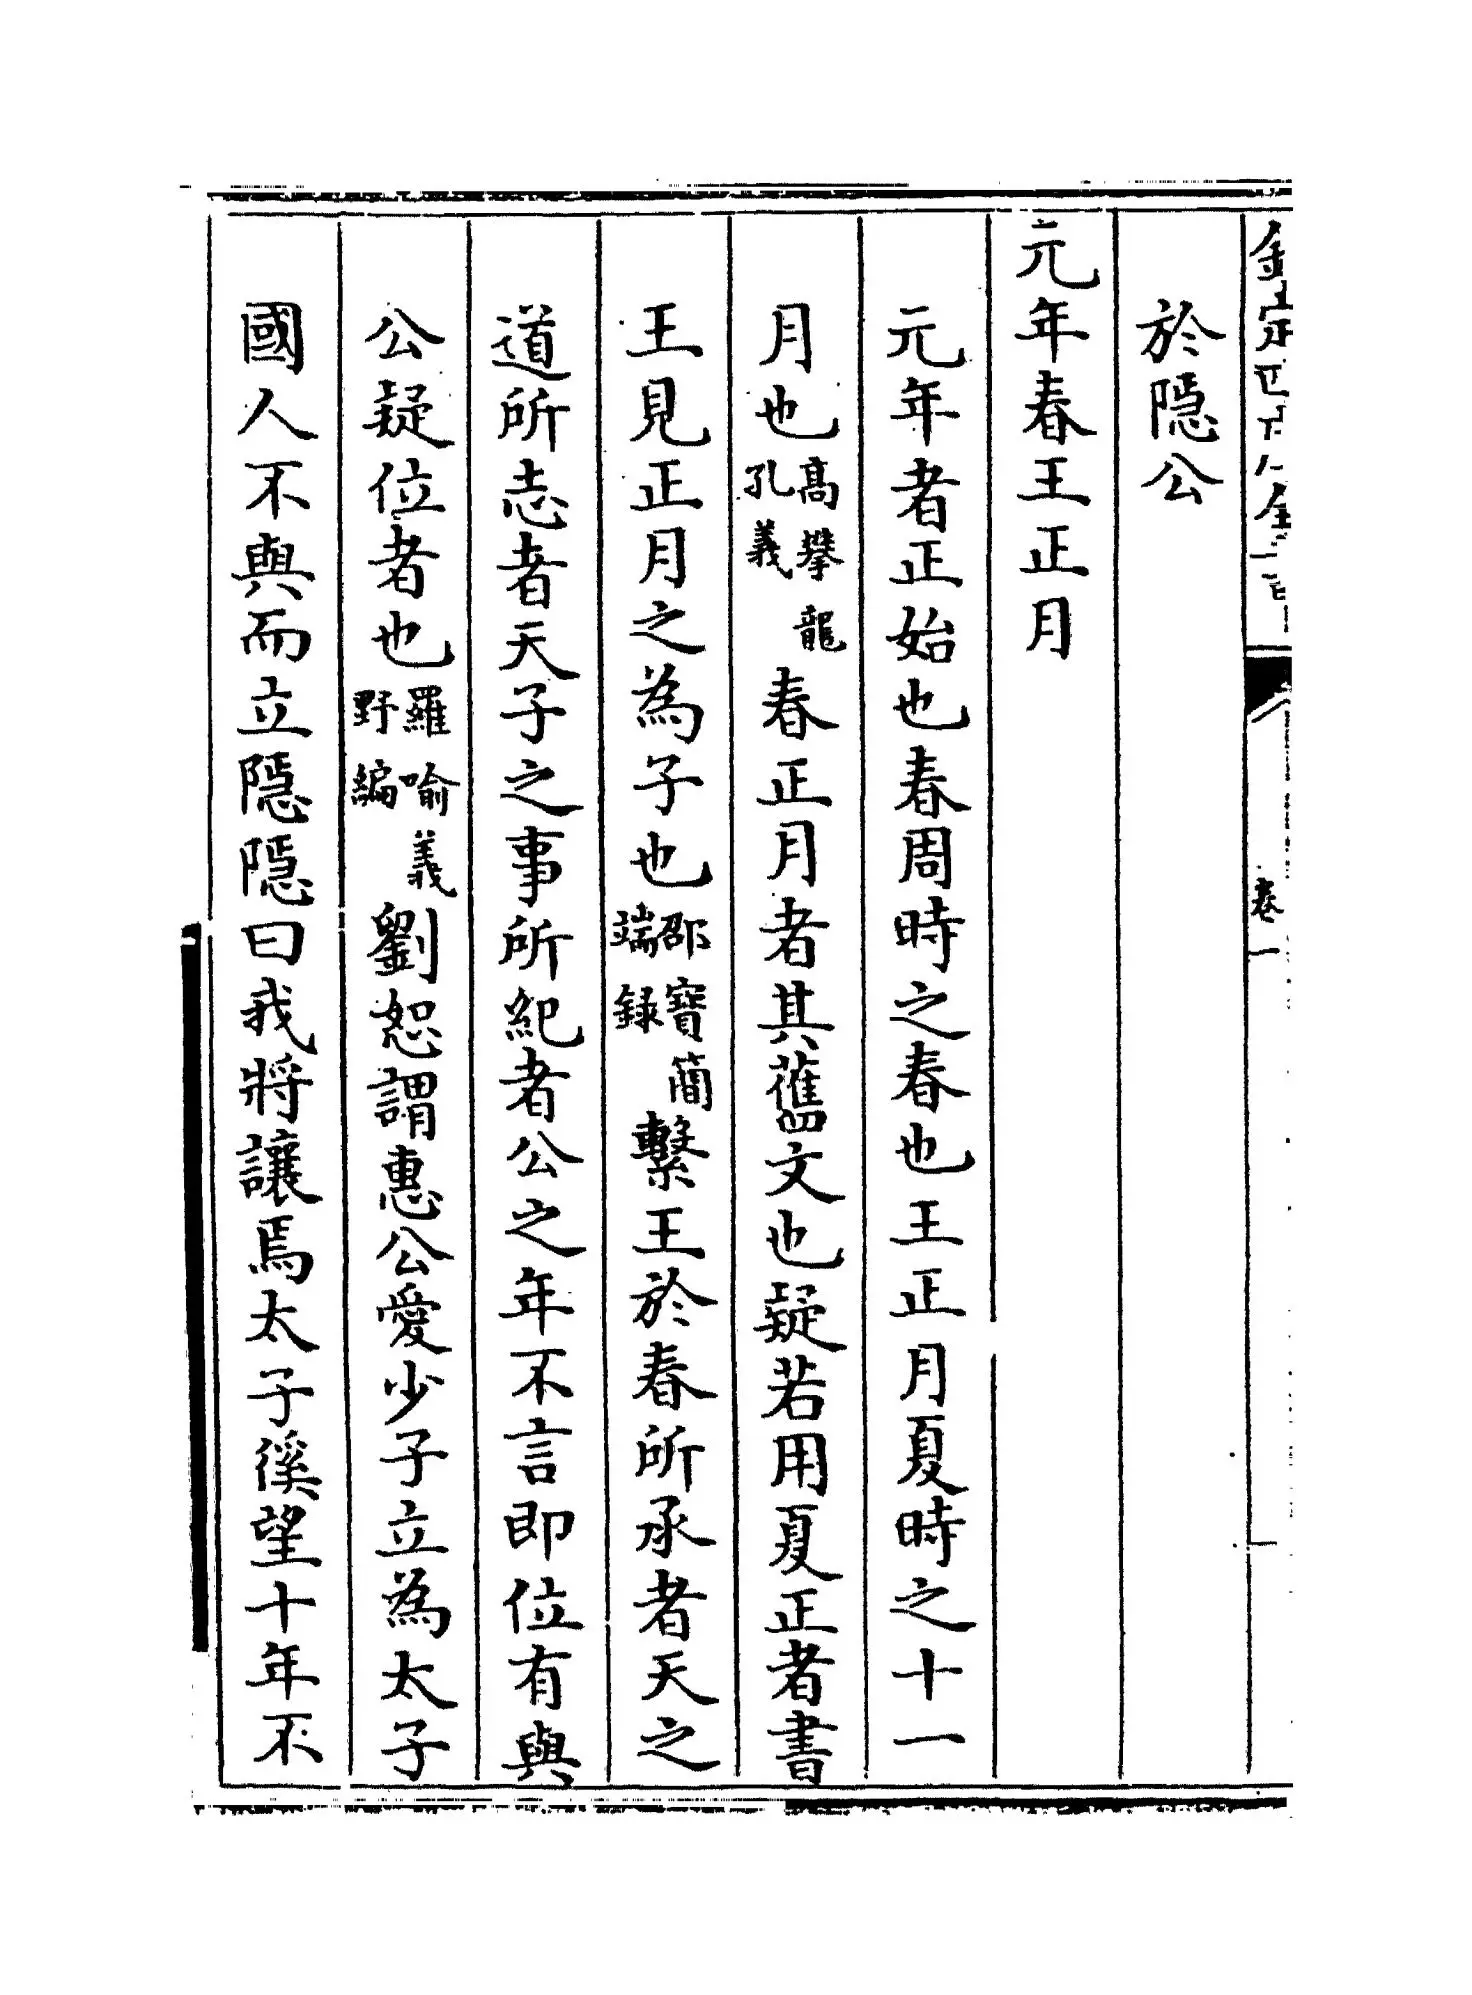 欽定四庫全書
卷一
於隠公
元年春王正月
元年者正始也春周時之春也王正月夏時之十一
月也高攀龍孔義春正月者其舊文也疑若用夏正者書
王見正月之為子也邵寶簡端録繫王於春所承者天之
道所志者天子之事所紀者公之年不言即位有與
公疑位者也羅喻義野編劉恕謂惠公愛少子立為太子
國人不與而立隠隠曰我將讓焉太子徯望十年不